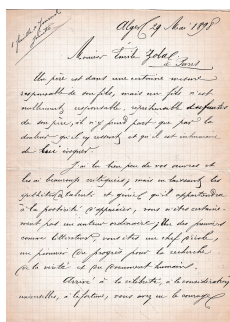 Alger 29 Mai 1898
Monsieur Emile Zola
Paris
Un père est dans une certaine mesure
responsable de son fils, mais un fils n'est
nullement responsable, des fautes
de son père, il n'y prend part que par la
douleur qu'il en ressent et qu'il est inhumain
de lui
J'ai lu bien peu de vos œuvres et
les ai beaucoup critiquées, mais en laissant les
talent et génie, qu'il appartiendra
à la postérité d'apprécier, vous n'êtes certaine-
ment pas un auteur ordinaire,
comme littérateur, vous êtes un chef d'école,
un pionnier du progrès pour la recherche
de la vérité et du document humain.
Arrivé à la célébrité, à la considération
universelle, à la fortune, vous avez eu le courage